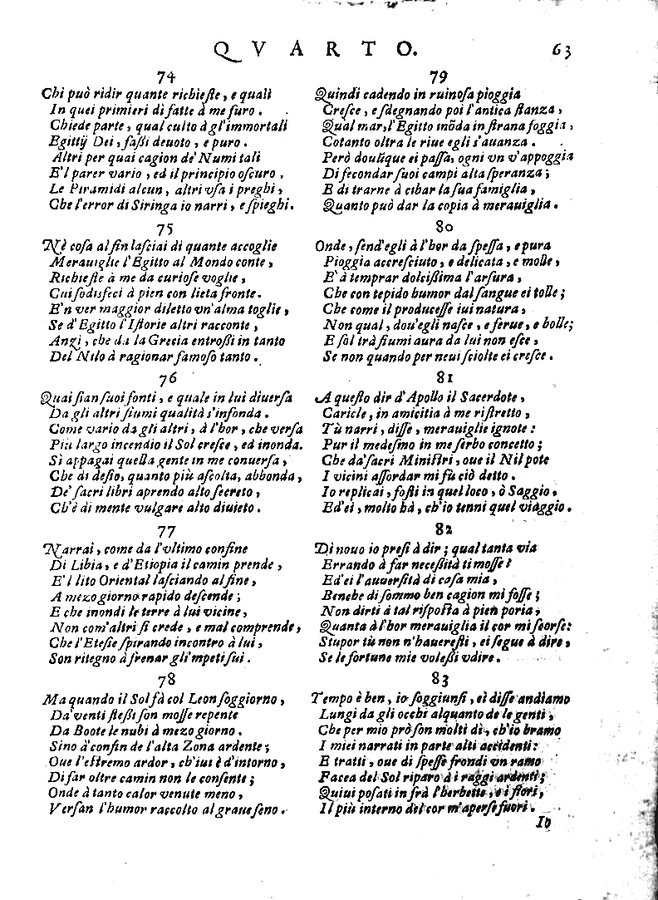 QVARTO. 63
74
Chi può ridir quante richieſte, e quali
In quei primieri dì fatte à me furo.
Chiede parte, qual culto à gl'immortali
Egittij Dei, ſaſſi deuoto, e puro.
Altri per quai cagion de' Numi tali
E'l parer vario, ed il principio oſcuro.
Le Piramidi alcun, altri vſa i preghi,
Che l'error di Siringa io narri, e ſpieghi.
75
Nè coſa al fin laſciai di quante accoglie
Merauiglie l'Egitto al Mondo conte,
Richieſte à me da curioſe voglie,
Cui ſodisfeci à pien con lieta fronte.
E'n ver maggior diletto vn'alma toglie,
Se d'Egitto l'Iſtorie altri racconte,
Anzi, che da la Grecia entroßi in tanto
Del Nilo à ragionar famoſo tanto.
76
Quai ſian ſuoi fonti, e quale in lui diuerſa
Da gli altri fiumi qualità s'infonda.
Come vario da gli altri, à l'hor, che verſa
Più largo incendio il Sol creſce, ed inonda.
Sì appagai quella gente in me conuerſa,
Che di deſio, quanto più aſcolta, abbonda,
De' ſacri libri aprendo alto ſecreto,
Ch'è di mente vulgare alto diuieto.
77
Narrai, come da l'vltimo confine
Di Libia, e d'Etiopia il camin prende,
E'l lito Oriental laſciando al fine,
A mezo giorno rapido deſcende;
E che inondi le terre à lui vicine,
Non com'altri ſi crede, e mal comprende,
Che l'Eteſie ſpirando incontro à lui,
Son ritegno à frenar gl'impeti ſui.
78
Ma quando il Sol fà col Leon ſoggiorno,
Da' venti ſteßi ſon moſſe repente
Da Boote le nubi à mezo giorno.
Sino à confin de l'alta Zona ardente;
Oue l'eſtremo ardor, ch'ius è d'intorno,
Di far oltre camin non le conſente;
Onde à tanto calor venute meno,
Verſan l'humor raccolto al graue ſeno.
79
Quindi cadendo in ruinoſa pioggia
Creſce, e ſdegnando poi l'antica ſtanza,
Qual mar, l'Egitto inõda in ſtrana foggia,
Cotanto oltra le riue egli s'auanza.
Però douũque ei paſſa, ogni vn v'appoggia
Di fecondar ſuoi campi alta ſperanza;
E di trarne à cibar la ſua famiglia,
Quanto può dar la copia à merauiglia.
80
Onde, ſend'egli à l'hor da ſpeſſa, e pura
Pioggia accreſciuto, e delicata, e molle,
E' à temprar dolcißima l'arſura,
Che con tepido humor dal ſangue ei tolle;
Che come il produceſſe iui natura,
Non qual, dou'egli naſce, e ferue, e bolle;
E ſol trà fiumi aura da lui non eſce,
Se non quando per neui ſciolte ei creſce.
81
A queſto dir d'Apollo il Sacerdote,
Caricle, in amicitia à me riſtretto,
Tù narri, diſſe, merauiglie ignote:
Pur il medeſmo in me ſerbo concetto;
Che da' ſacri Miniſtri, oue il Nil pote
I vicini aſſordar mi fù ciò detto.
Io replicai, foſti in quel loco, ò Saggio.
Ed ei, molto hà, ch'io tenni quel viaggio.
82
Di nouo io preſi à dir; qual tanta via
Errando à far neceßità ti moſſe?
Ed ei l'auuerſità di caſa mia,
Benche di ſommo ben cagion mi foſſe;
Non dirti à tal riſpoſta à pien poria,
Quanta à l'hor merauiglia il cor mi ſcorſe:
Stupor tù non n'haureſti, ei ſegue à dire,
Se le fortune mie voleßi vdire.
83
Tempo è ben, io ſoggiunſi, ei diſſe andiamo
Lungi da gli occhi alquanto de le genti,
Che per mio prò ſon molti dì, ch'io bramo
I miei narrati in parte alti accidenti:
E tratti, oue di ſpeſſe frondi vn ramo
Facea del Sol riparo à i raggi ardenti;
Quiui poſati in frà l'herbette, e i fiori,
Il più interno del cor m'aperſe fuori.
Io